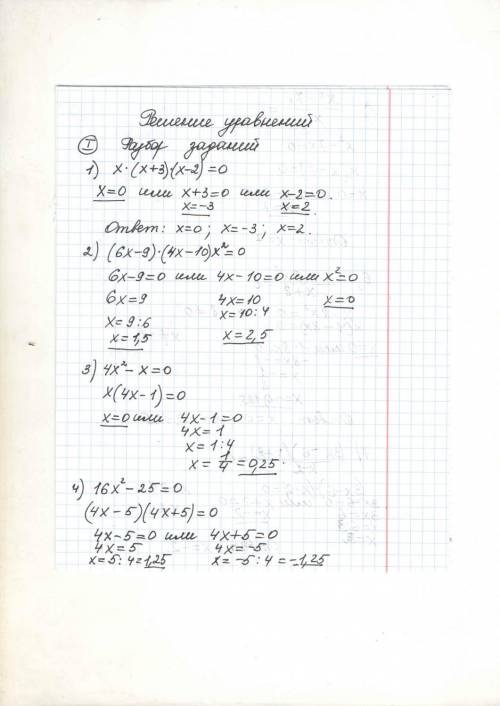 Решение уравнений
I Разбор заданий
1) x·(x+3)·(x-2)=0
x=0 или x+3=0 или x-2=0.
x=-3 x=2
Ответ: x=0; x=-3; x=2.
2) (6x-9)·(4x-10)x²=0
6x-9=0 или 4x-10=0 или x²=0
6x=9 4x=10 x=0
x=9:6 x=10:4
x=1,5 x=2,5
3) 4x²-x=0
x(4x-1)=0
x=0 или 4x-1=0
4x=1
x=1:4
x=1/4=0,25.
4) 16x²-25=0
(4x-5)(4x+5)=0
4x-5=0 или 4x+5=0
4x=5 4x=-5
x=5:4=1,25 x=-5:4=-1,25